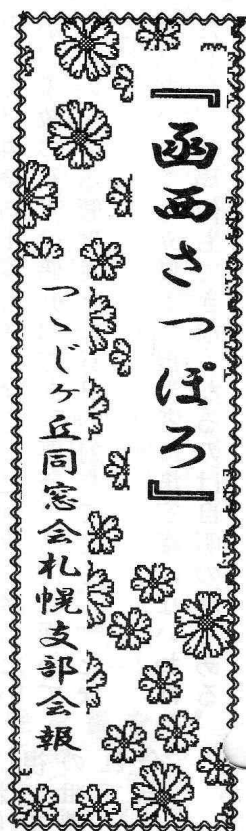 『函西さっぽろ』
つゝじヶ丘同窓会札幌支部会報